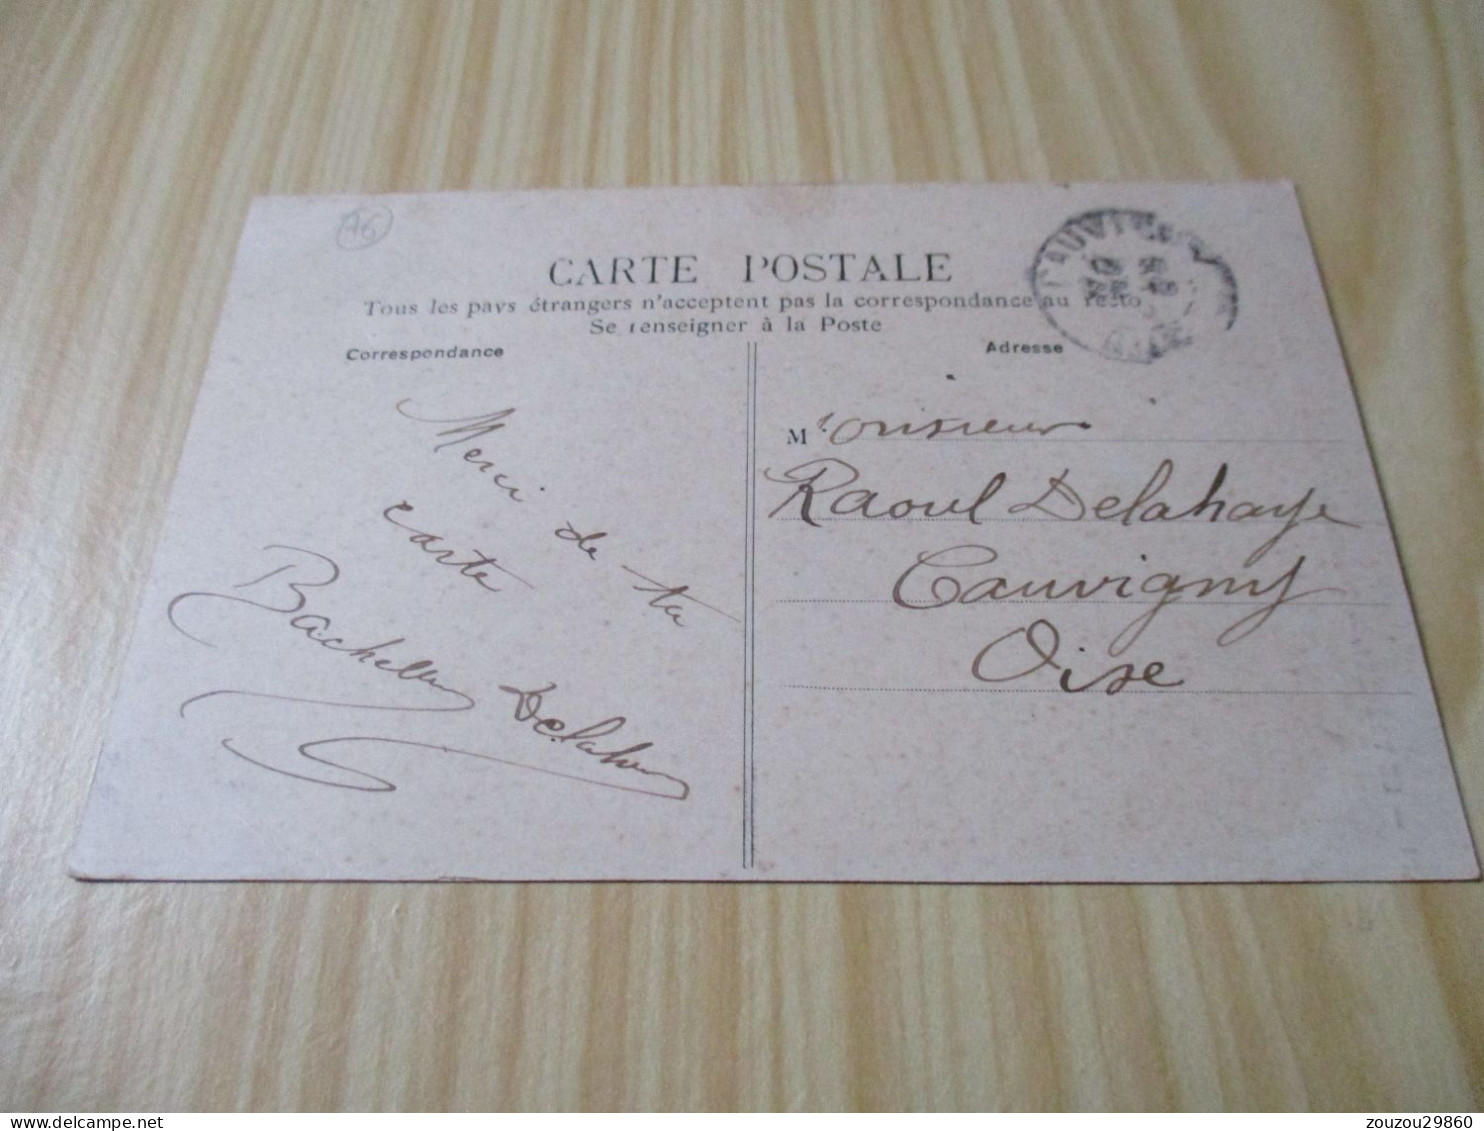 76
CARTE POSTALE
Tous les pays étrangers n'acceptent pas la correspondance au recto
Se renseigner à la Poste
Correspondance
Merci de ta
carte
Adresse
Monsieur
Raoul Delahaye
Cauvigny
Oise
zouzou29860